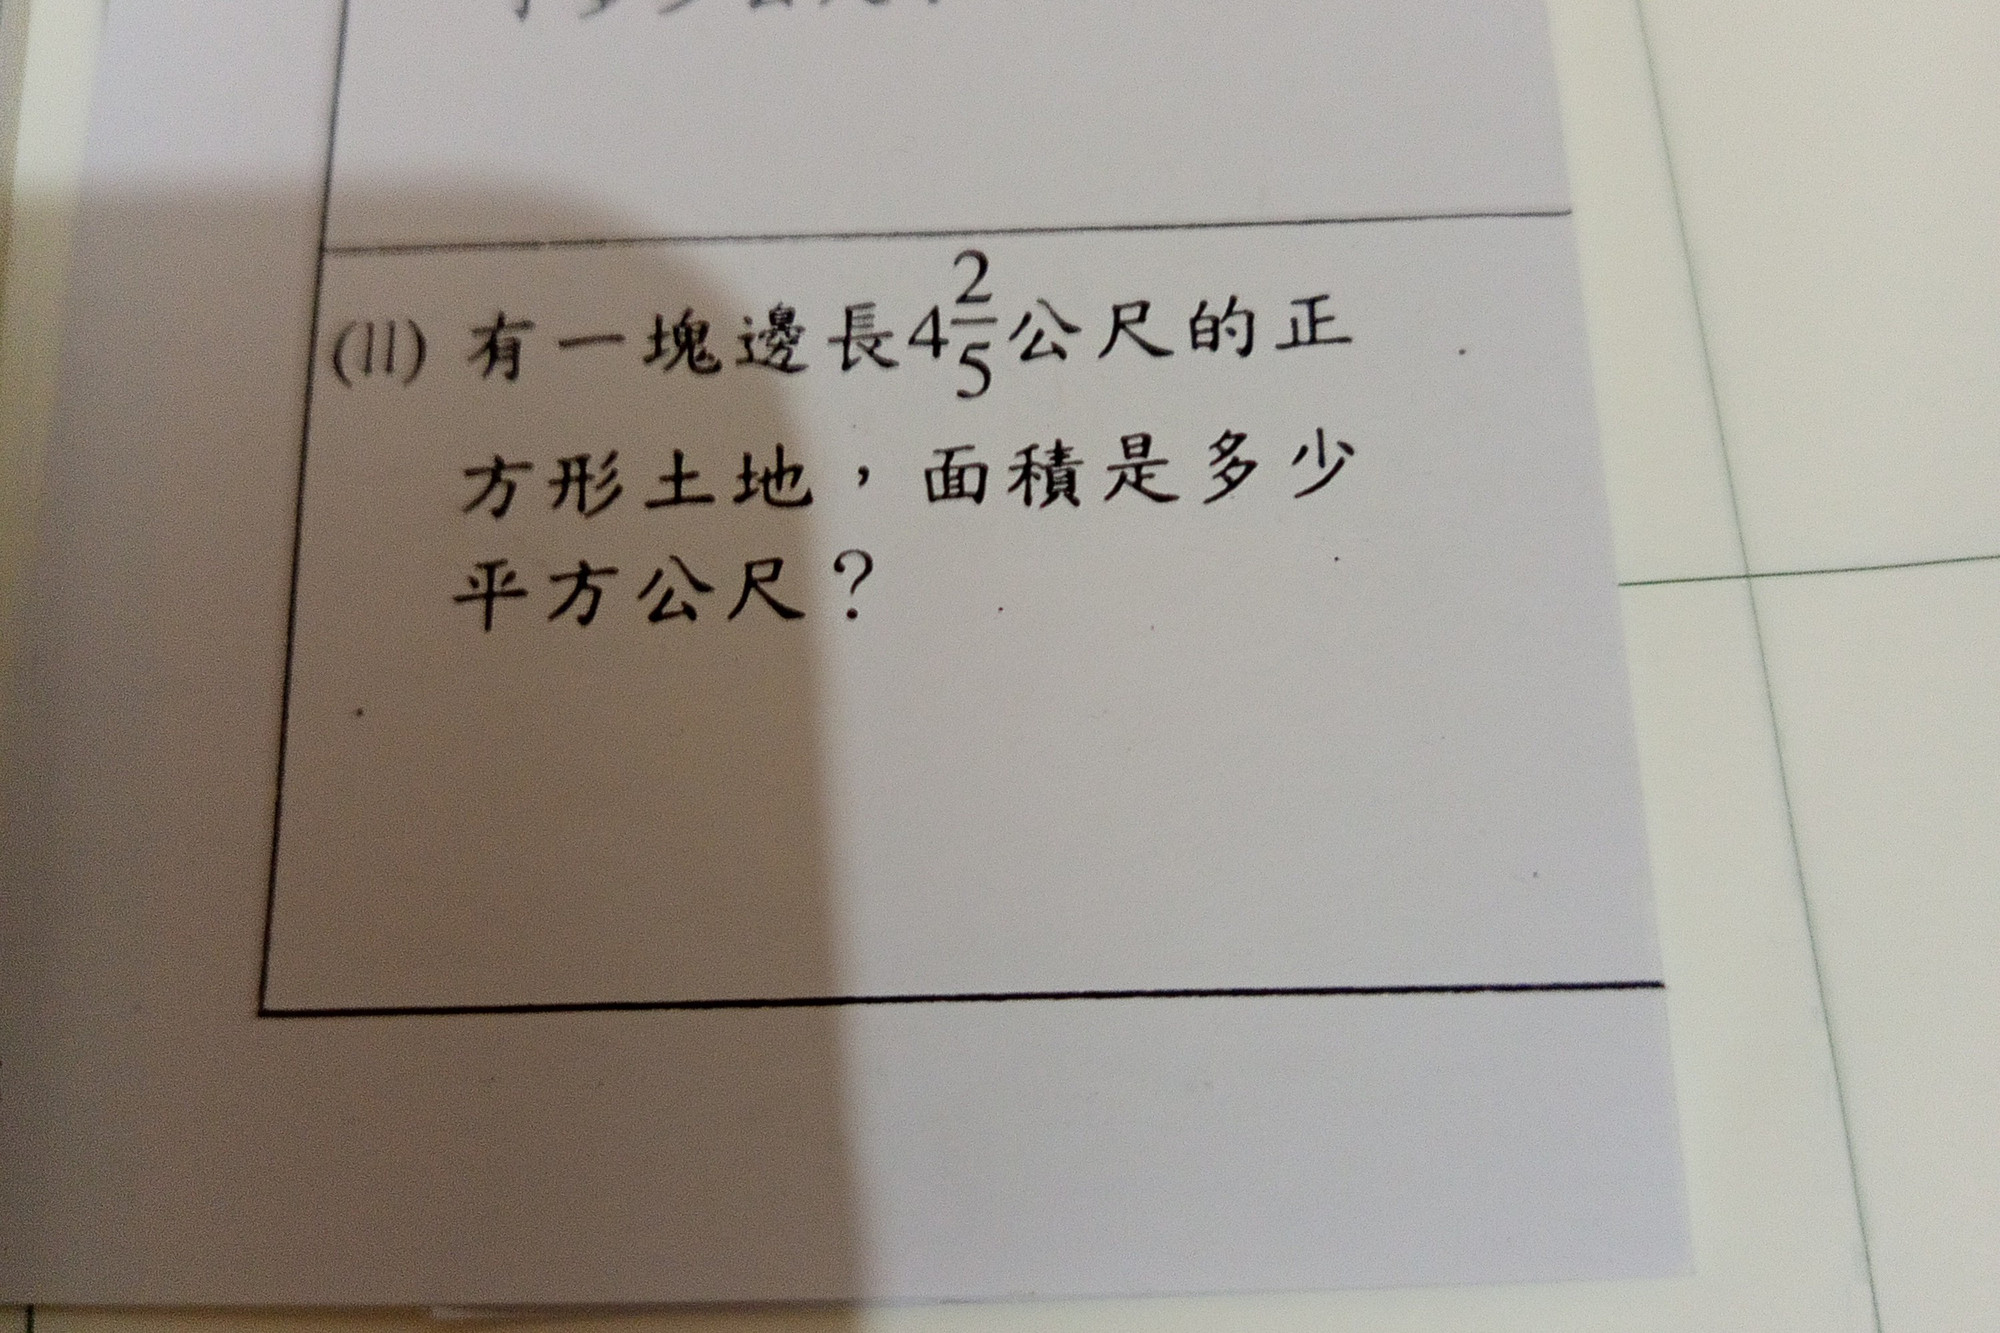 (11) 有一塊邊長42/5公尺的正
方形土地，面積是多少
平方公尺？